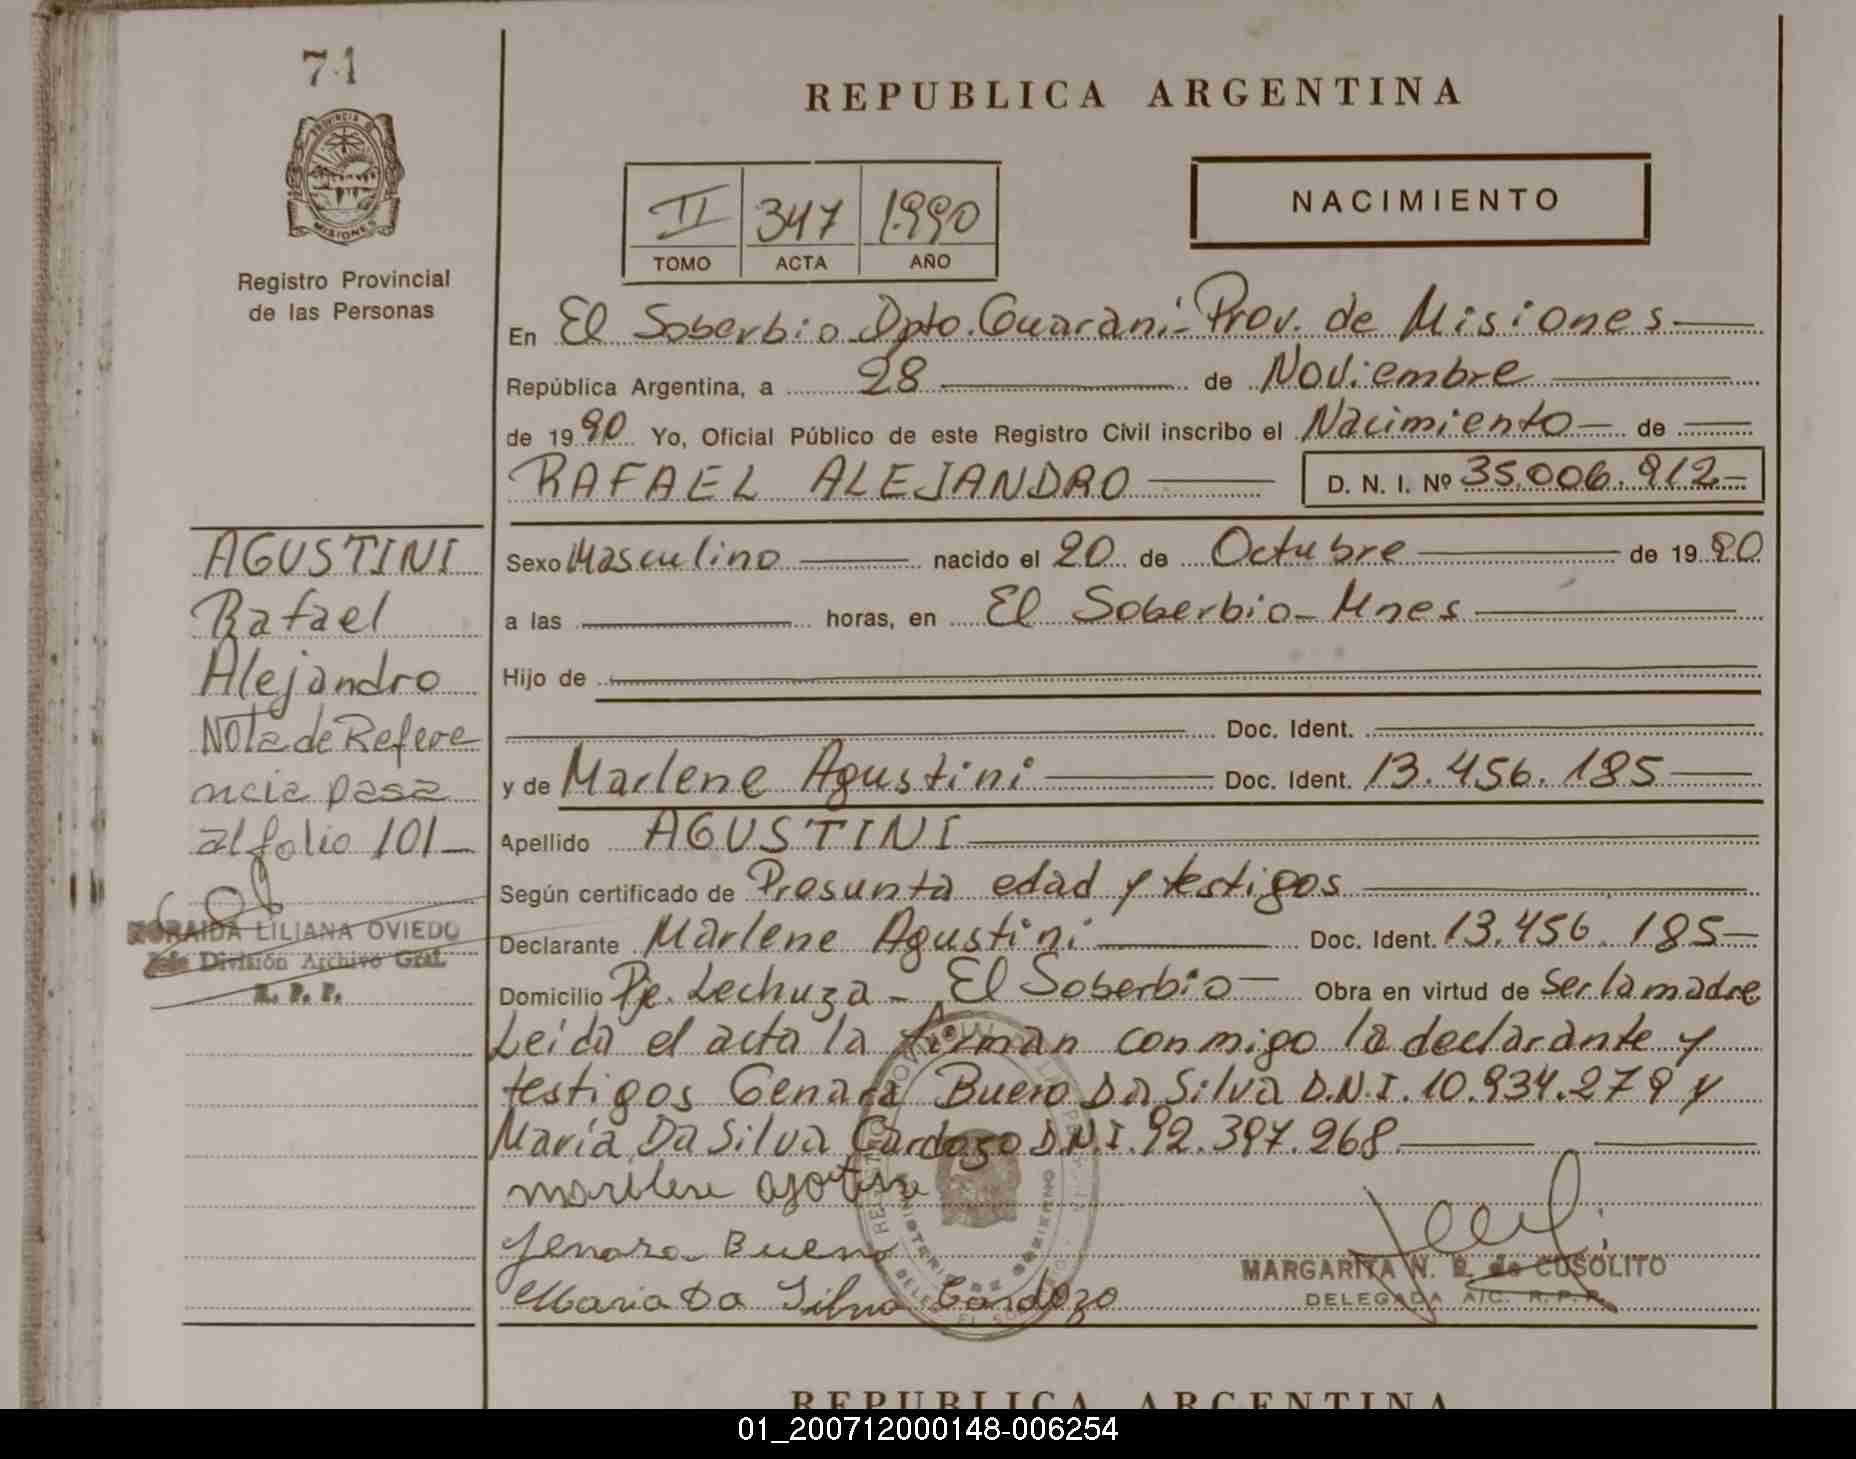 71
PROVINCIA D
MISIONES
Registro Provincial
de las Personas
REPUBLICA ARGENTINA
II 347 1.990
TOMO ACTA AÑO
NACIMIENTO
En El Soberbio Dpto. Guaraní-Prov. de Misiones
República Argentina, a 28 de Noviembre
de 1990 Yo, Oficial Público de este Registro Civil inscribo el Nacimiento de
RAFAEL ALEJANDRO D. N. I. Nº 35.006.912-
AGUSTINI
Rafael
Alejandro
Nota de Refere
ncia pasa
al folio 101-
ZORAIDA LILIANA OVIEDO
Jefe División Archivo Gral.
R. P. P.
Sexo Masculino nacido el 20 de Octubre de 1990
a las horas, en El Soberbio-Mnes
Hijo de
Doc. Ident.
y de Marlene Agustini Doc. Ident. 13.456.185
Apellido AGUSTINI
Según certificado de Presunta edad y testigos
Declarante Marlene Agustini Doc. Ident. 13.456.185-
Domicilio Pje. Lechuza - El Soberbio- Obra en virtud de ser la madre
Leída el acta la firman conmigo la declarante y
testigos Genara Bueno Da Silva D.N.I. 10.934.279 y
María Da Silva Cardozo D.N.I. 92.397.268
Genara Bueno
Maria Da Silva Cardozo
MARGARITA N. B. de CUSOLITO
DELEGADA A/C. R.P.P.
REPUBLICA ARGENTINA
01_200712000148-006254